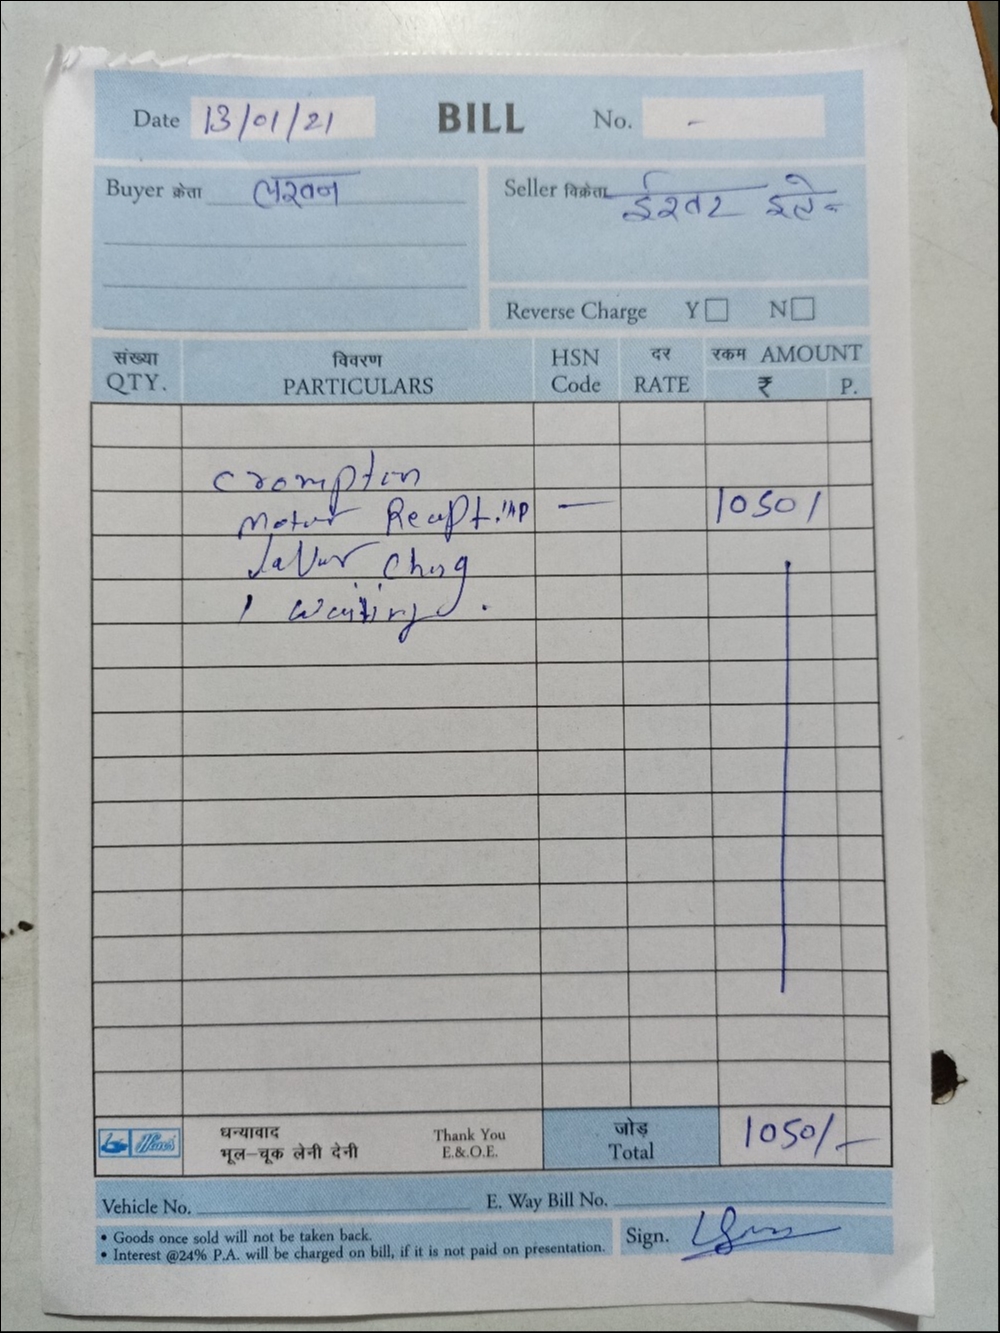 Date 13/01/21 BILL No. -
Buyer क्रेता लखन
Seller विक्रेता ईश्वर इले
Reverse Charge Y N
संख्या विवरण HSN दर रकम AMOUNT
QTY. PARTICULARS Code RATE ₹ P.
Crompton
Motor 1HP — 1050/
1
धन्यवाद Thank You जोड़ 1050/-
भूल-चूक लेनी देनी E.&.O.E. Total
Vehicle No. E. Way Bill No.
• Goods once sold will not be taken back.
• Interest @24% P.A. will be charged on bill, if it is not paid on presentation.
Sign.